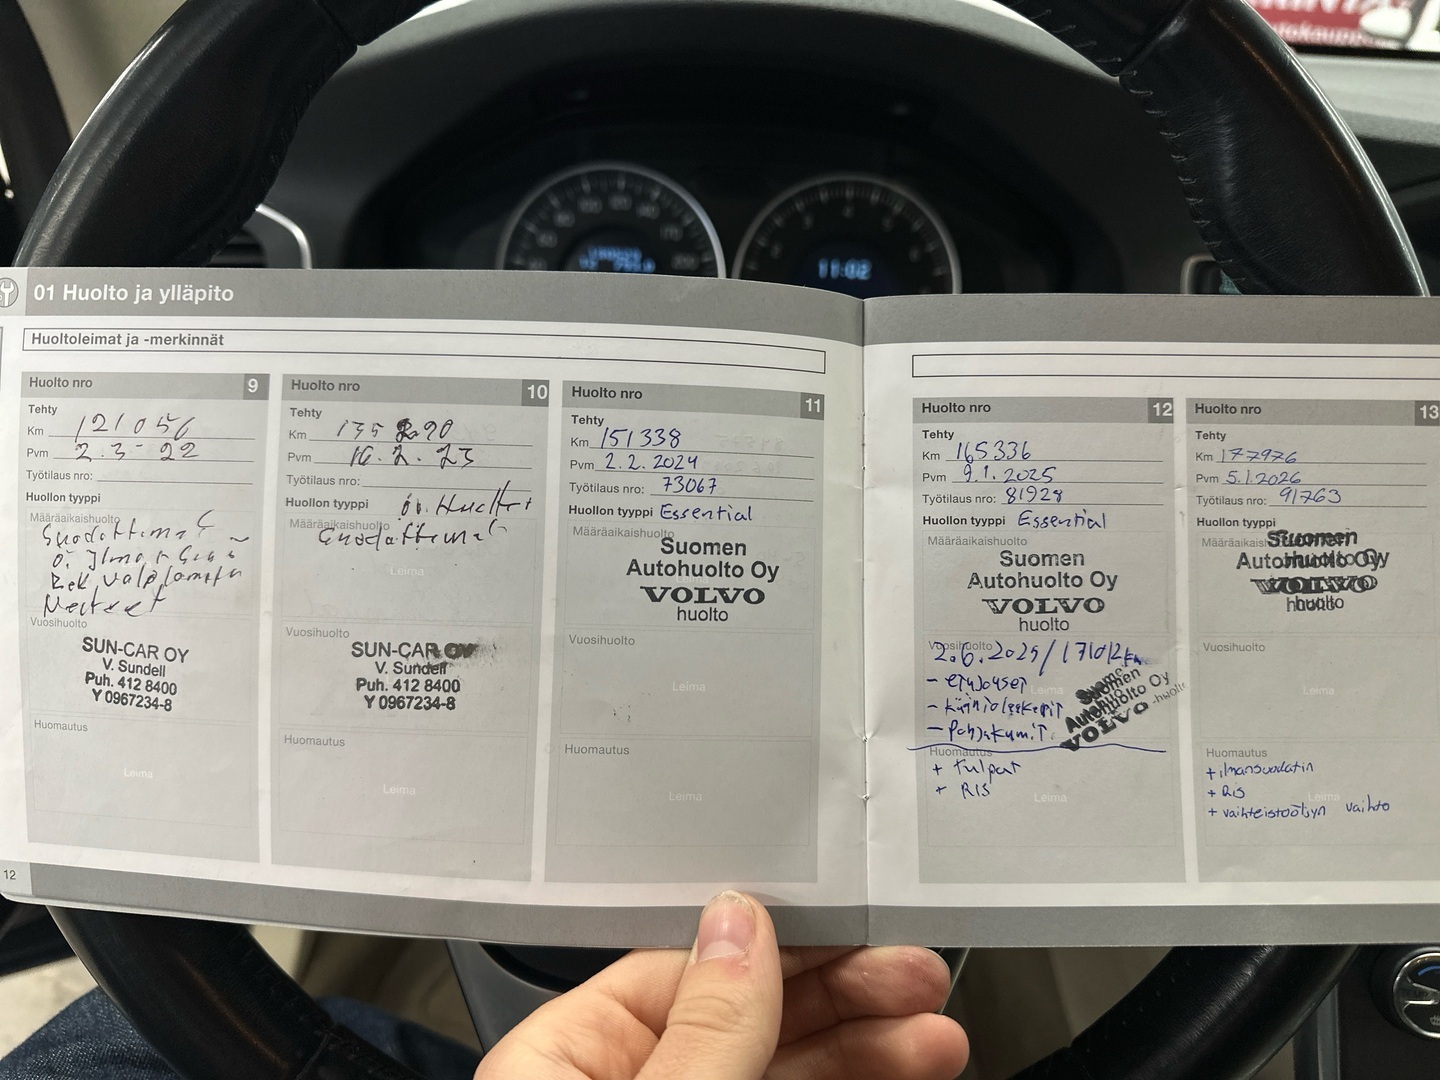 11:02
01 Huolto ja ylläpito
Huoltoleimat ja -merkinnät
Huolto nro 9
Tehty
Km 121056
Pvm 2.3-22
Työtilaus nro:
Huollon tyyppi
Määräaikaishuolto
Vuosihuolto
SUN-CAR OY
V. Sundell
Puh. 412 8400
Y 0967234-8
Huomautus
Leima
12
Huolto nro 10
Tehty
Km 135
Pvm 16.2.23
Työtilaus nro:
Huollon tyyppi
Määräaikaishuolto
Leima
Vuosihuolto
SUN-CAR OY
V. Sundell
Puh. 412 8400
Y 0967234-8
Huomautus
Leima
Huolto nro 11
Tehty
Km 151338
Pvm 2.2.2024
Työtilaus nro: 73067
Huollon tyyppi Essential
Määräaikaishuolto
Suomen
Autohuolto Oy
VOLVO
huolto
Vuosihuolto
Leima
Huomautus
Leima
Huolto nro 12
Tehty
Km 165336
Pvm 9.1.2025
Työtilaus nro: 81928
Huollon tyyppi Essential
Määräaikaishuolto
Suomen
Autohuolto Oy
VOLVO
huolto
Vuosihuolto
2.6.2025/171012km
- etujouset
- Pohjakumit
Leima
Suomen
Autohuolto Oy
VOLVO -huolto
Huomautus
+ tulpat
+ RIS
Leima
Huolto nro 13
Tehty
Km 177976
Pvm 5.1.2026
Työtilaus nro: 91763
Huollon tyyppi
Määräaikaishuolto
Suomen
Autohuolto Oy
VOLVO
huolto
Vuosihuolto
Leima
Huomautus
+ ilmansuodatin
+ RIS
+ vaihteistoöljyn vaihto
Leima